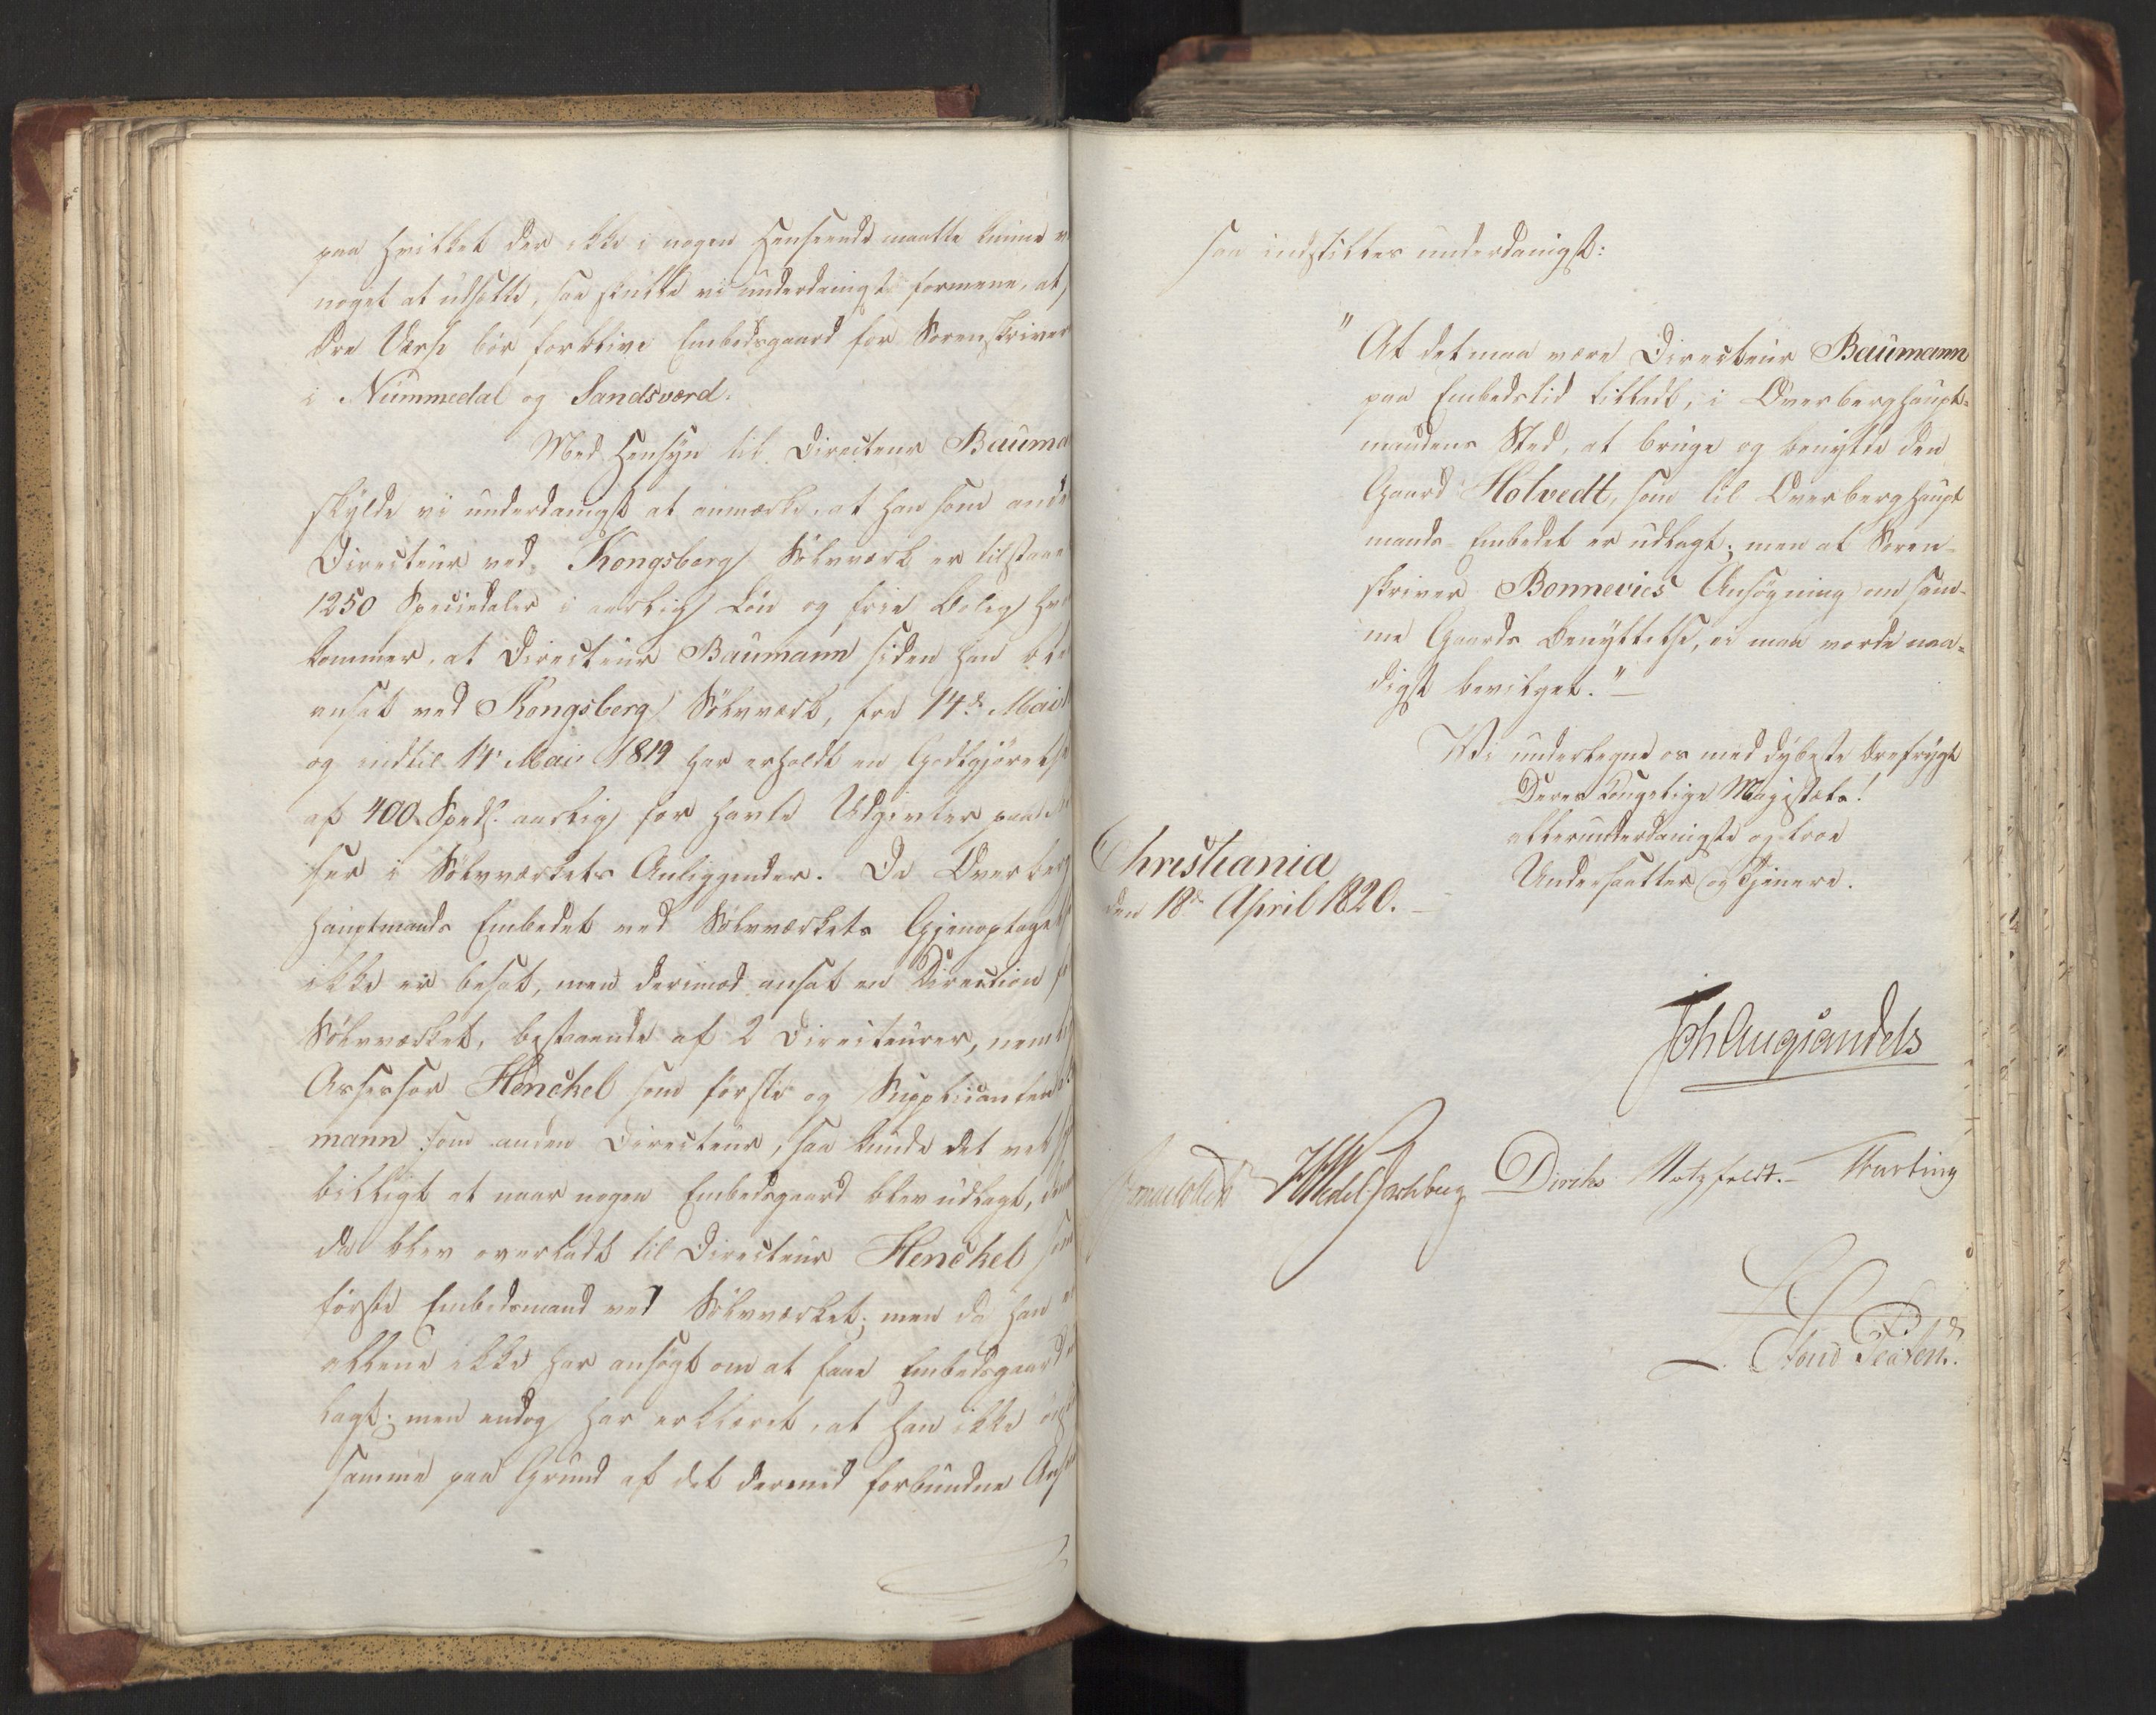 paa hvilket der ikke i nogen Henseende maatte kunne
noget at udsætte, saa skulle vi underdanigst formene, at
Øvre Værp bör forblive Embedsgaard for Sorenskriver
i Nummedal og Sandsværd.
Med Hensyn til Directeur Bauma
skylde vi underdanigst at anmærke, at han som ande
Directeur ved Kongsberg Sölvværk er tilstaae
1250 Speciedaler i aarlig Lön og frie Bolig hv
kommer, at Directeur Baumann siden han ble
ansat ved Kongsberg Sölvværk, fra 14de Mai
og indtil 14 Mai 1819 har erholdt en Godtgjörelse
af 400 Spdlr. aarlig for havte Udgivter paa
ser i Sölvværkets Anliggender. Da Overberg
hauptmands Embedet ved Sölvværkets Gjenoptagel
ikke er besat, men derimod ansat en Direction f
Sölvværket, bestaaende af 2 Directeurer, neml
Assessor Henckel som förste og Supplicanten
mann som anden Directeur, saa kunde det vel
billigt at naar nogen Embedsgaard blev udlagt,
da blev overladt til Directeur Henckel som
förste Embedsmand ved Sölvværket; men da han
allene ikke har ansögt om at faae Embedsgaard
lagt; men endog har erklæret, at han ikke
samme paa Grund af det dermed forbundne An
saa indstilles underdanigst:
"At det maa være Directeur Baumann
paa Embedstid tilladt, i Overberghaupt-
mandens Sted, at bruge og benytte den
Gaard Holvedt, som til Overberghaupt
mands Embedet er udlagt; men at Soren-
skriver Bonnevies Ansögning om sam-
me Gaards Benyttelse, ei maa vorde naa-
digst bevilget."
Vi undertegne os med dybeste Ærefrygt
Deres Kongelige Majestæts!
allerunderdanigste og troe
Undersaatter og Tjenere.
Christiania
den 18de April 1820.
Joh Aug Sandels
Sommerhielm HWedel Jarlsberg Diriks Motzfeldt. Fasting